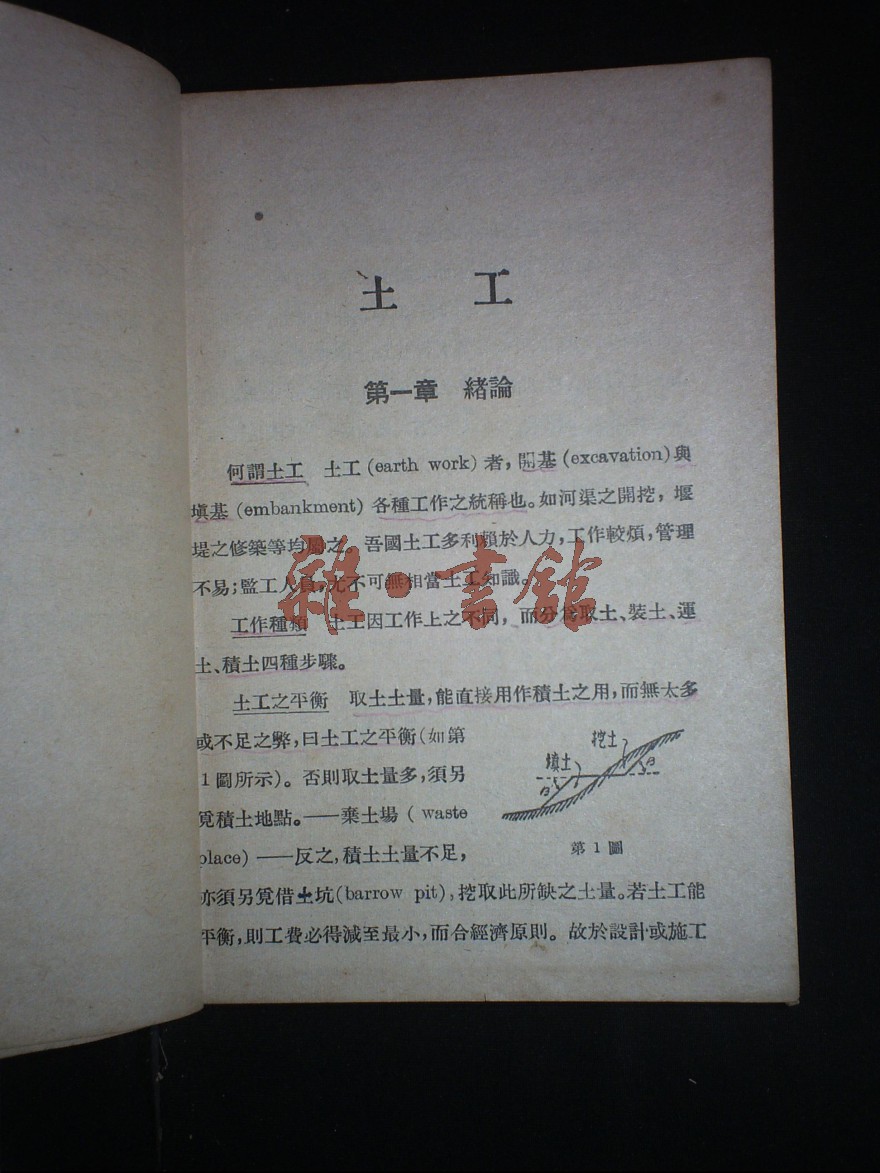 土 工
第一章 緒論
何謂土工 土工(earth work)者,開基(excavation)與
塡基(embankment)各種工作之統稱也。如河渠之開挖,堰
堤之修築等均屬之。吾國土工多利賴於人力,工作較煩,管理
不易;監工人員,尤不可無相當土工知識。
工作種類 土工因工作上之不同,而分爲取土、裝土、運
土、積土四種步驟。
土工之平衡 取土土量,能直接用作積土之用,而無太多
或不足之弊,曰土工之平衡(如第
1圖所示)。否則取土量多,須另
覓積土地點。——棄土場(waste
place)——反之,積土土量不足,
挖土
填土
B
B
第1圖
亦須另覓借土坑(barrow pit),挖取此所缺之土量。若土工能
平衡,則工費必得減至最小,而合經濟原則。故於設計或施工
雜·書舘